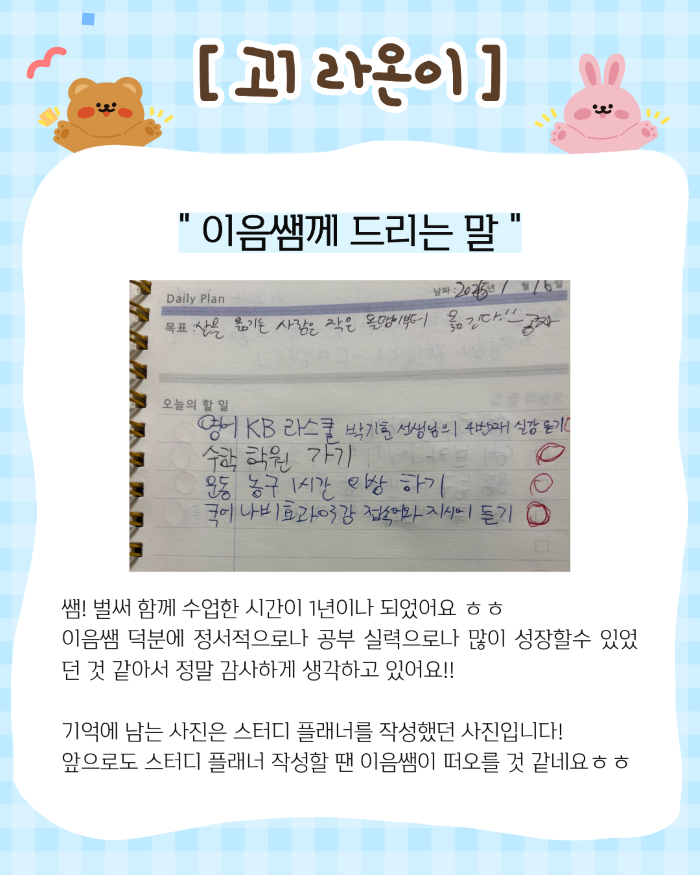 [ 고1 라온이 ]
" 이음쌤께 드리는 말 "
Daily Plan
날짜 : 2025년 1 월 16 일
목표 : 산을 옮기는 사람은 작은 돌멩이부터 옮긴다!! - 공자
오늘의 할 일
영어 KB 라스쿨 박기훈 선생님의 4번째 실강 듣기
수학 학원 가기
운동 농구 1시간 이상 하기
국어 나비효과 03강 접속어와 지시어 듣기
쌤! 벌써 함께 수업한 시간이 1년이나 되었어요 ㅎㅎ
이음쌤 덕분에 정서적으로나 공부 실력으로나 많이 성장할수 있었
던 것 같아서 정말 감사하게 생각하고 있어요!!
기억에 남는 사진은 스터디 플래너를 작성했던 사진입니다!
앞으로도 스터디 플래너 작성할 땐 이음쌤이 떠오를 것 같네요ㅎㅎ